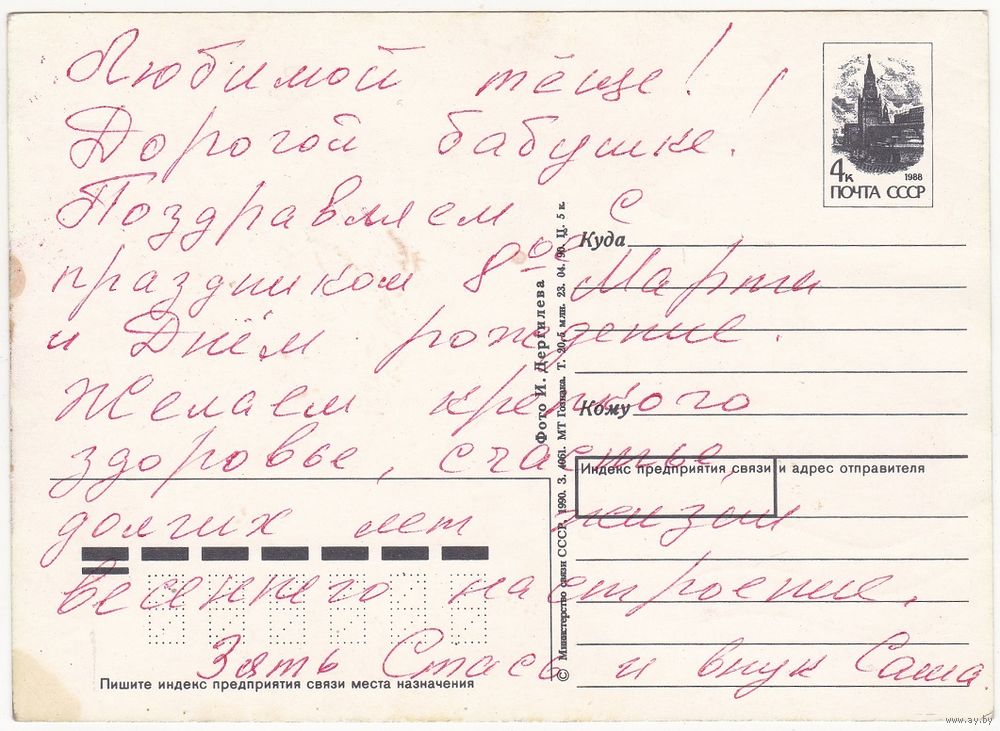 Любимой тёще!
Дорогой бабушке!
Поздравляем с
праздником 8ое Марта
и Днём рождение.
Желаем крепкого
здоровье, счастье,
долгих лет жизни
весеннего настроение.
Зять Стас и внук Саша
4к 1988
ПОЧТА СССР
Куда
Кому
Индекс предприятия связи и адрес отправителя
Фото И. Дергилева
© Министерство связи СССР, 1990. З. 4061. МТ Гознака. Т. 20,5 млн. 23. 04. 90. Ц. 5 к.
Пишите индекс предприятия связи места назначения
www.ay.by